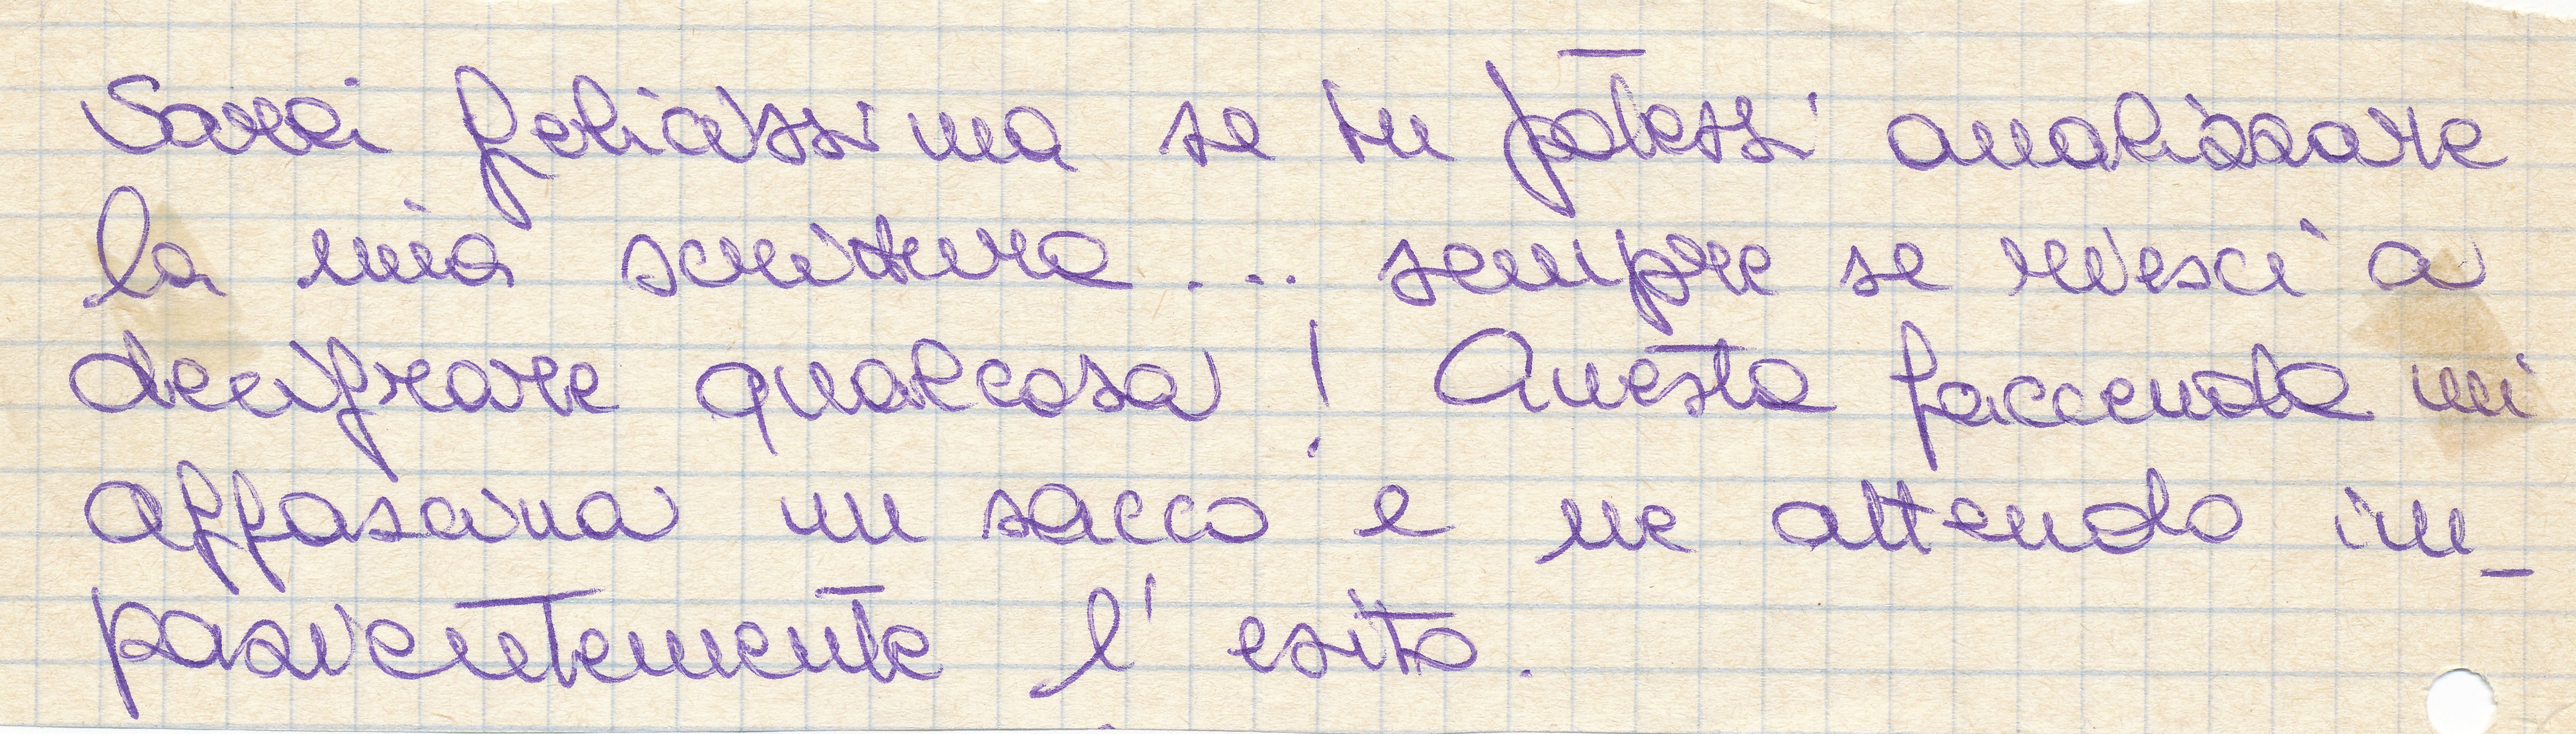 Sarei felicissima se tu potessi analizzare
la mia scrittura .... sempre se riesci a
decifrare qualcosa! Questa faccenda mi
affascina un sacco e ne attendo im_
pazientemente l'esito.